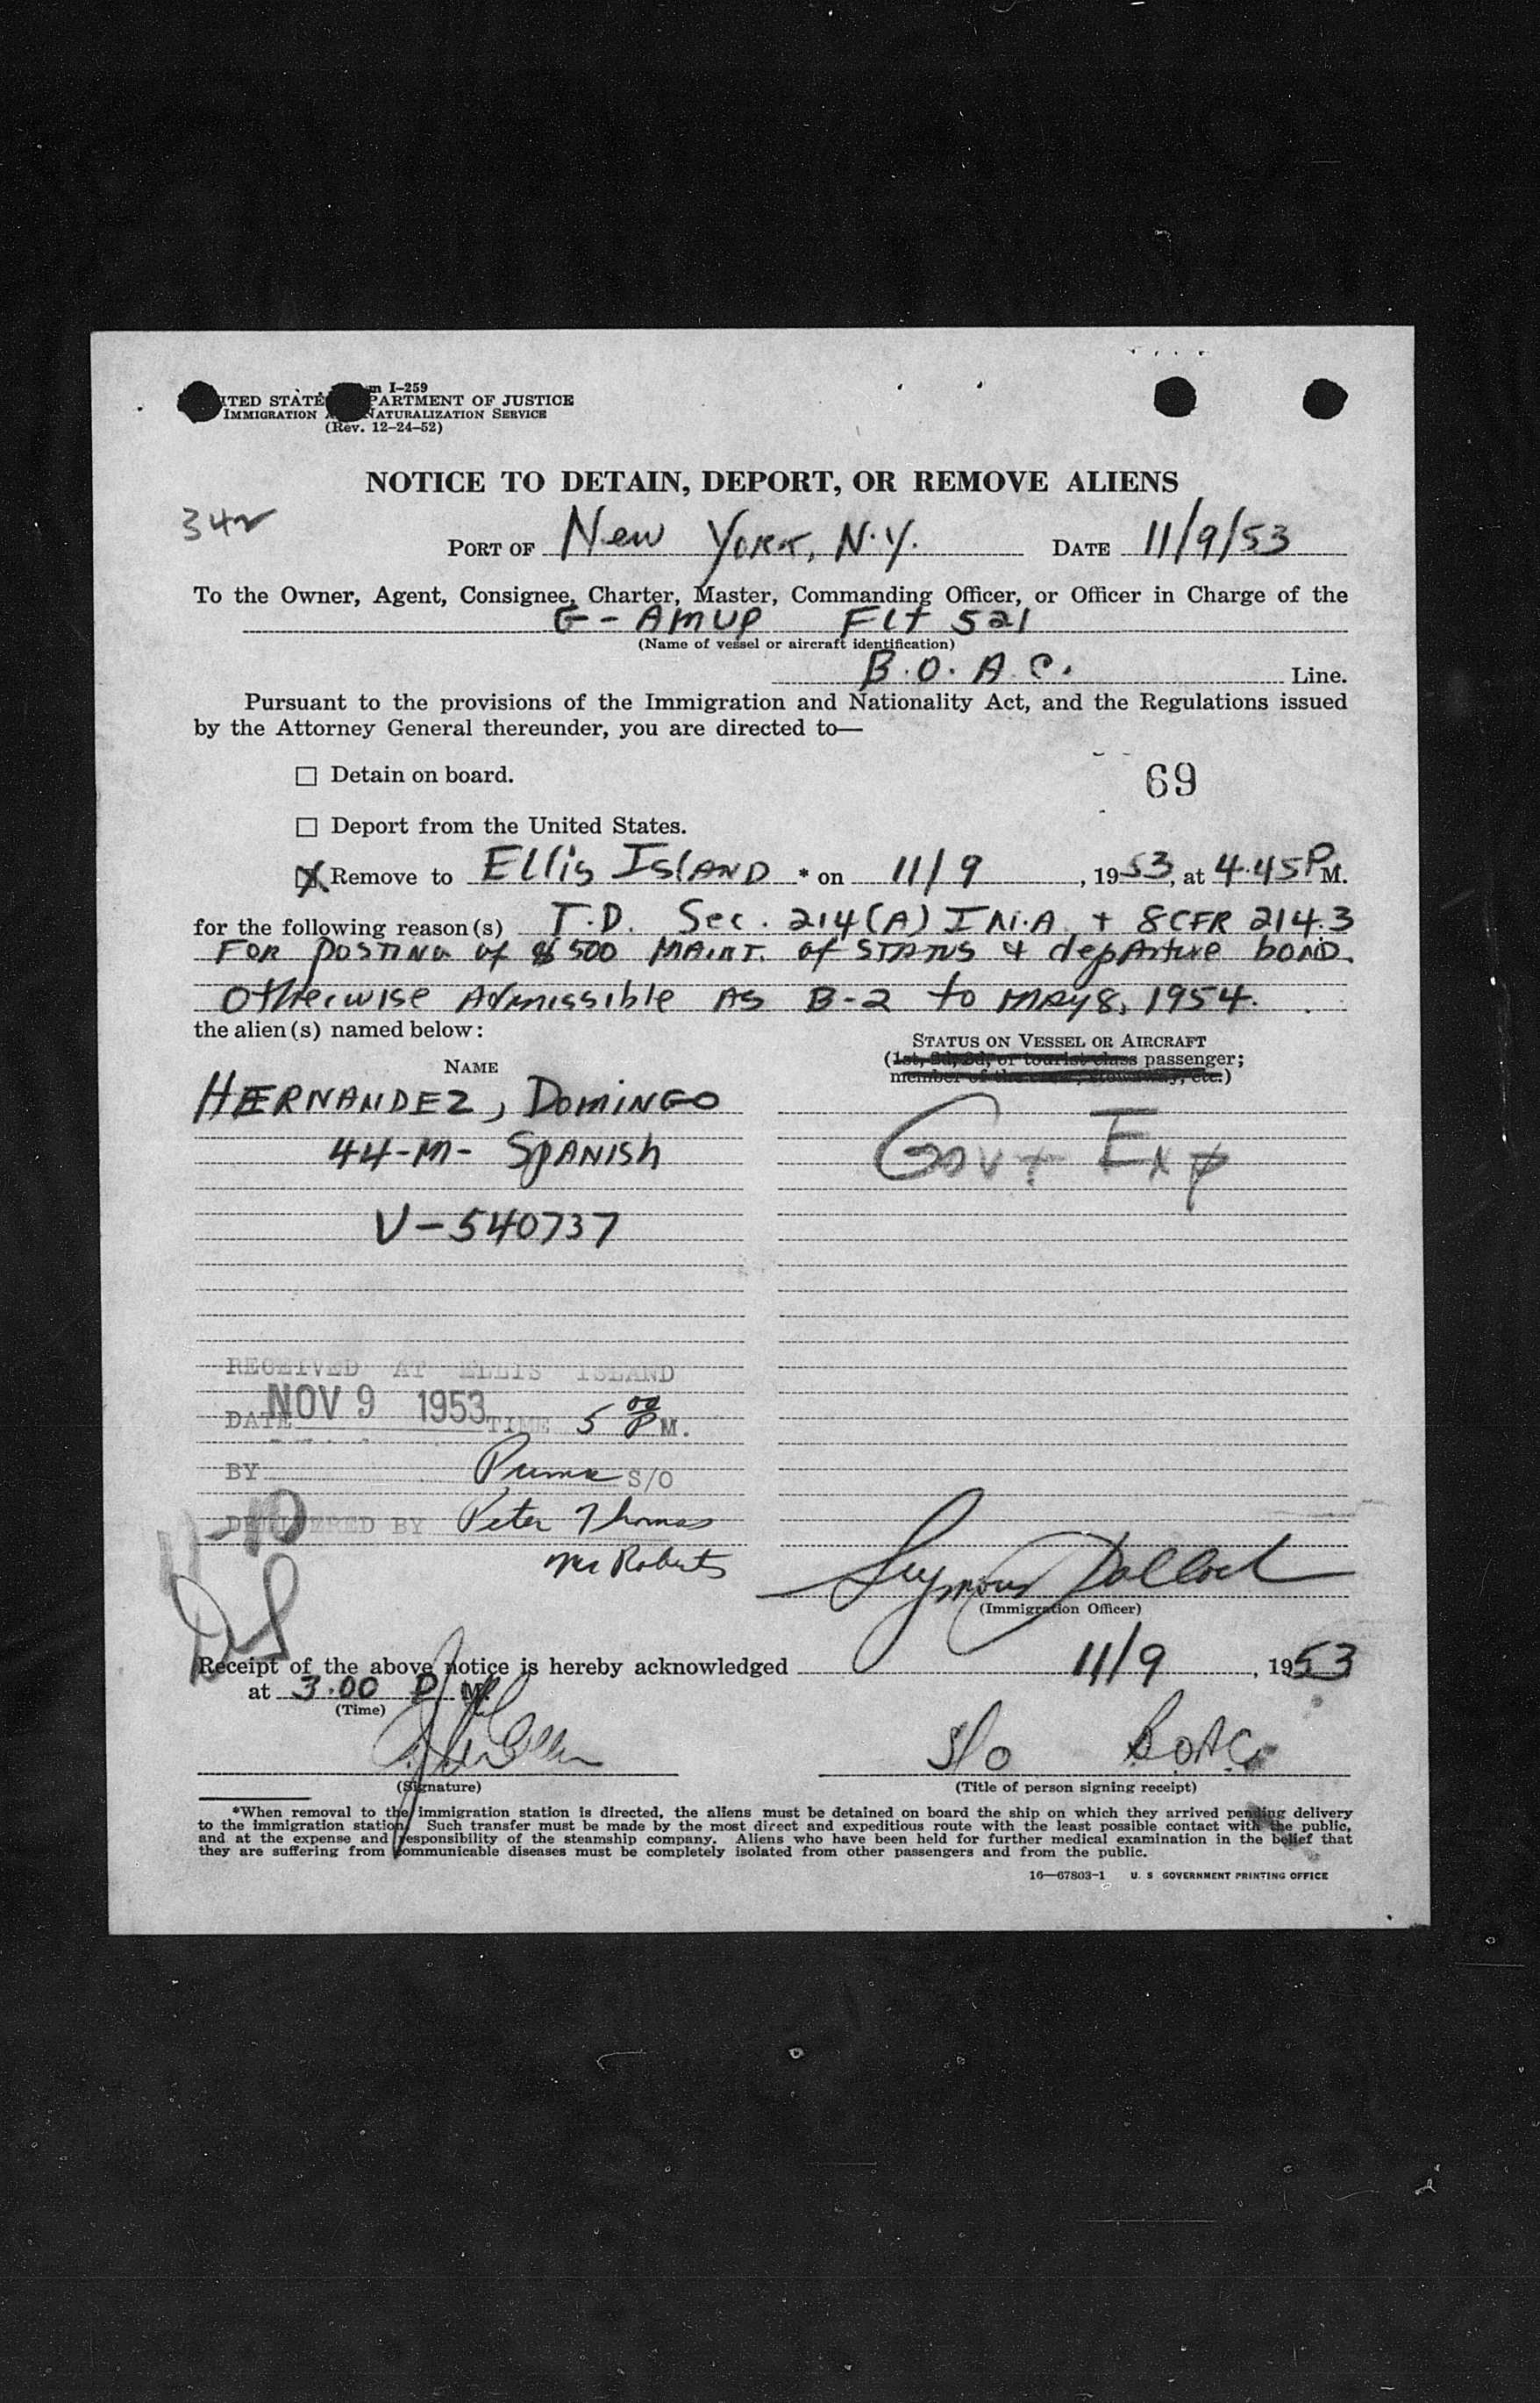 m I-259
ITED STATE PARTMENT OF JUSTICE
IMMIGRATION NATURALIZATION SERVICE
(Rev. 12-24-52)
NOTICE TO DETAIN, DEPORT, OR REMOVE ALIENS
342
PORT OF New York, N.Y. DATE 11/9/53
To the Owner, Agent, Consignee, Charter, Master, Commanding Officer, or Officer in Charge of the
G-AMUP Flt 521
(Name of vessel or aircraft identification)
B.O.A.C. Line.
Pursuant to the provisions of the Immigration and Nationality Act, and the Regulations issued
by the Attorney General thereunder, you are directed to—
☐ Detain on board.
69
☐ Deport from the United States.
☒ Remove to Ellis Island * on 11/9, 1953, at 4.45 P M.
for the following reason(s) T.D. Sec. 214(A) I.N.A. + 8CFR 214.3
FOR posting of $500 MAINT. of STATUS & departure bond.
Otherwise Admissible AS B-2 to May 8, 1954.
the alien(s) named below:
NAME
STATUS ON VESSEL OR AIRCRAFT
(1st, 2d, 3d, or tourist class passenger;
member of the crew, stowaway, etc.)
HERNANDEZ, DOMINGO
44-M- SPANISH
Gov't Exp
V-540737
RECEIVED AT ELLIS ISLAND
DATE NOV 9 1953 TIME 5 00 P M.
BY S/O
DELIVERED BY Peter Thomas
Mr Roberts
11-10
Seymour
(Immigration Officer)
Receipt of the above notice is hereby acknowledged 11/9, 1953
at 3.00 P M.
(Time)
S/O B.O.A.C.
(Signature)
(Title of person signing receipt)
*When removal to the immigration station is directed, the aliens must be detained on board the ship on which they arrived pending delivery
to the immigration station. Such transfer must be made by the most direct and expeditious route with the least possible contact with the public,
and at the expense and responsibility of the steamship company. Aliens who have been held for further medical examination in the belief that
they are suffering from communicable diseases must be completely isolated from other passengers and from the public.
16—67803-1 U. S GOVERNMENT PRINTING OFFICE